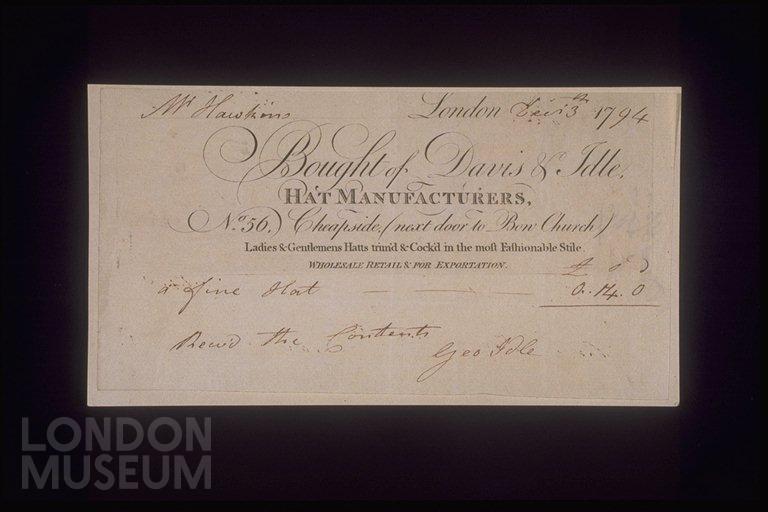 Mr Hawkins London Decr 13th 1794
Bought of Davis & Idle,
HAT MANUFACTURERS,
No. 56,) Cheapside, (next door to Bow Church)
Ladies & Gentlemens Hatts trim'd & Cock'd in the most Fashionable Stile.
WHOLESALE RETAIL & FOR EXPORTATION.
a fine Hat 0.. 14. 0
Recu'd the Contents
Geo Idle
LONDON
MUSEUM